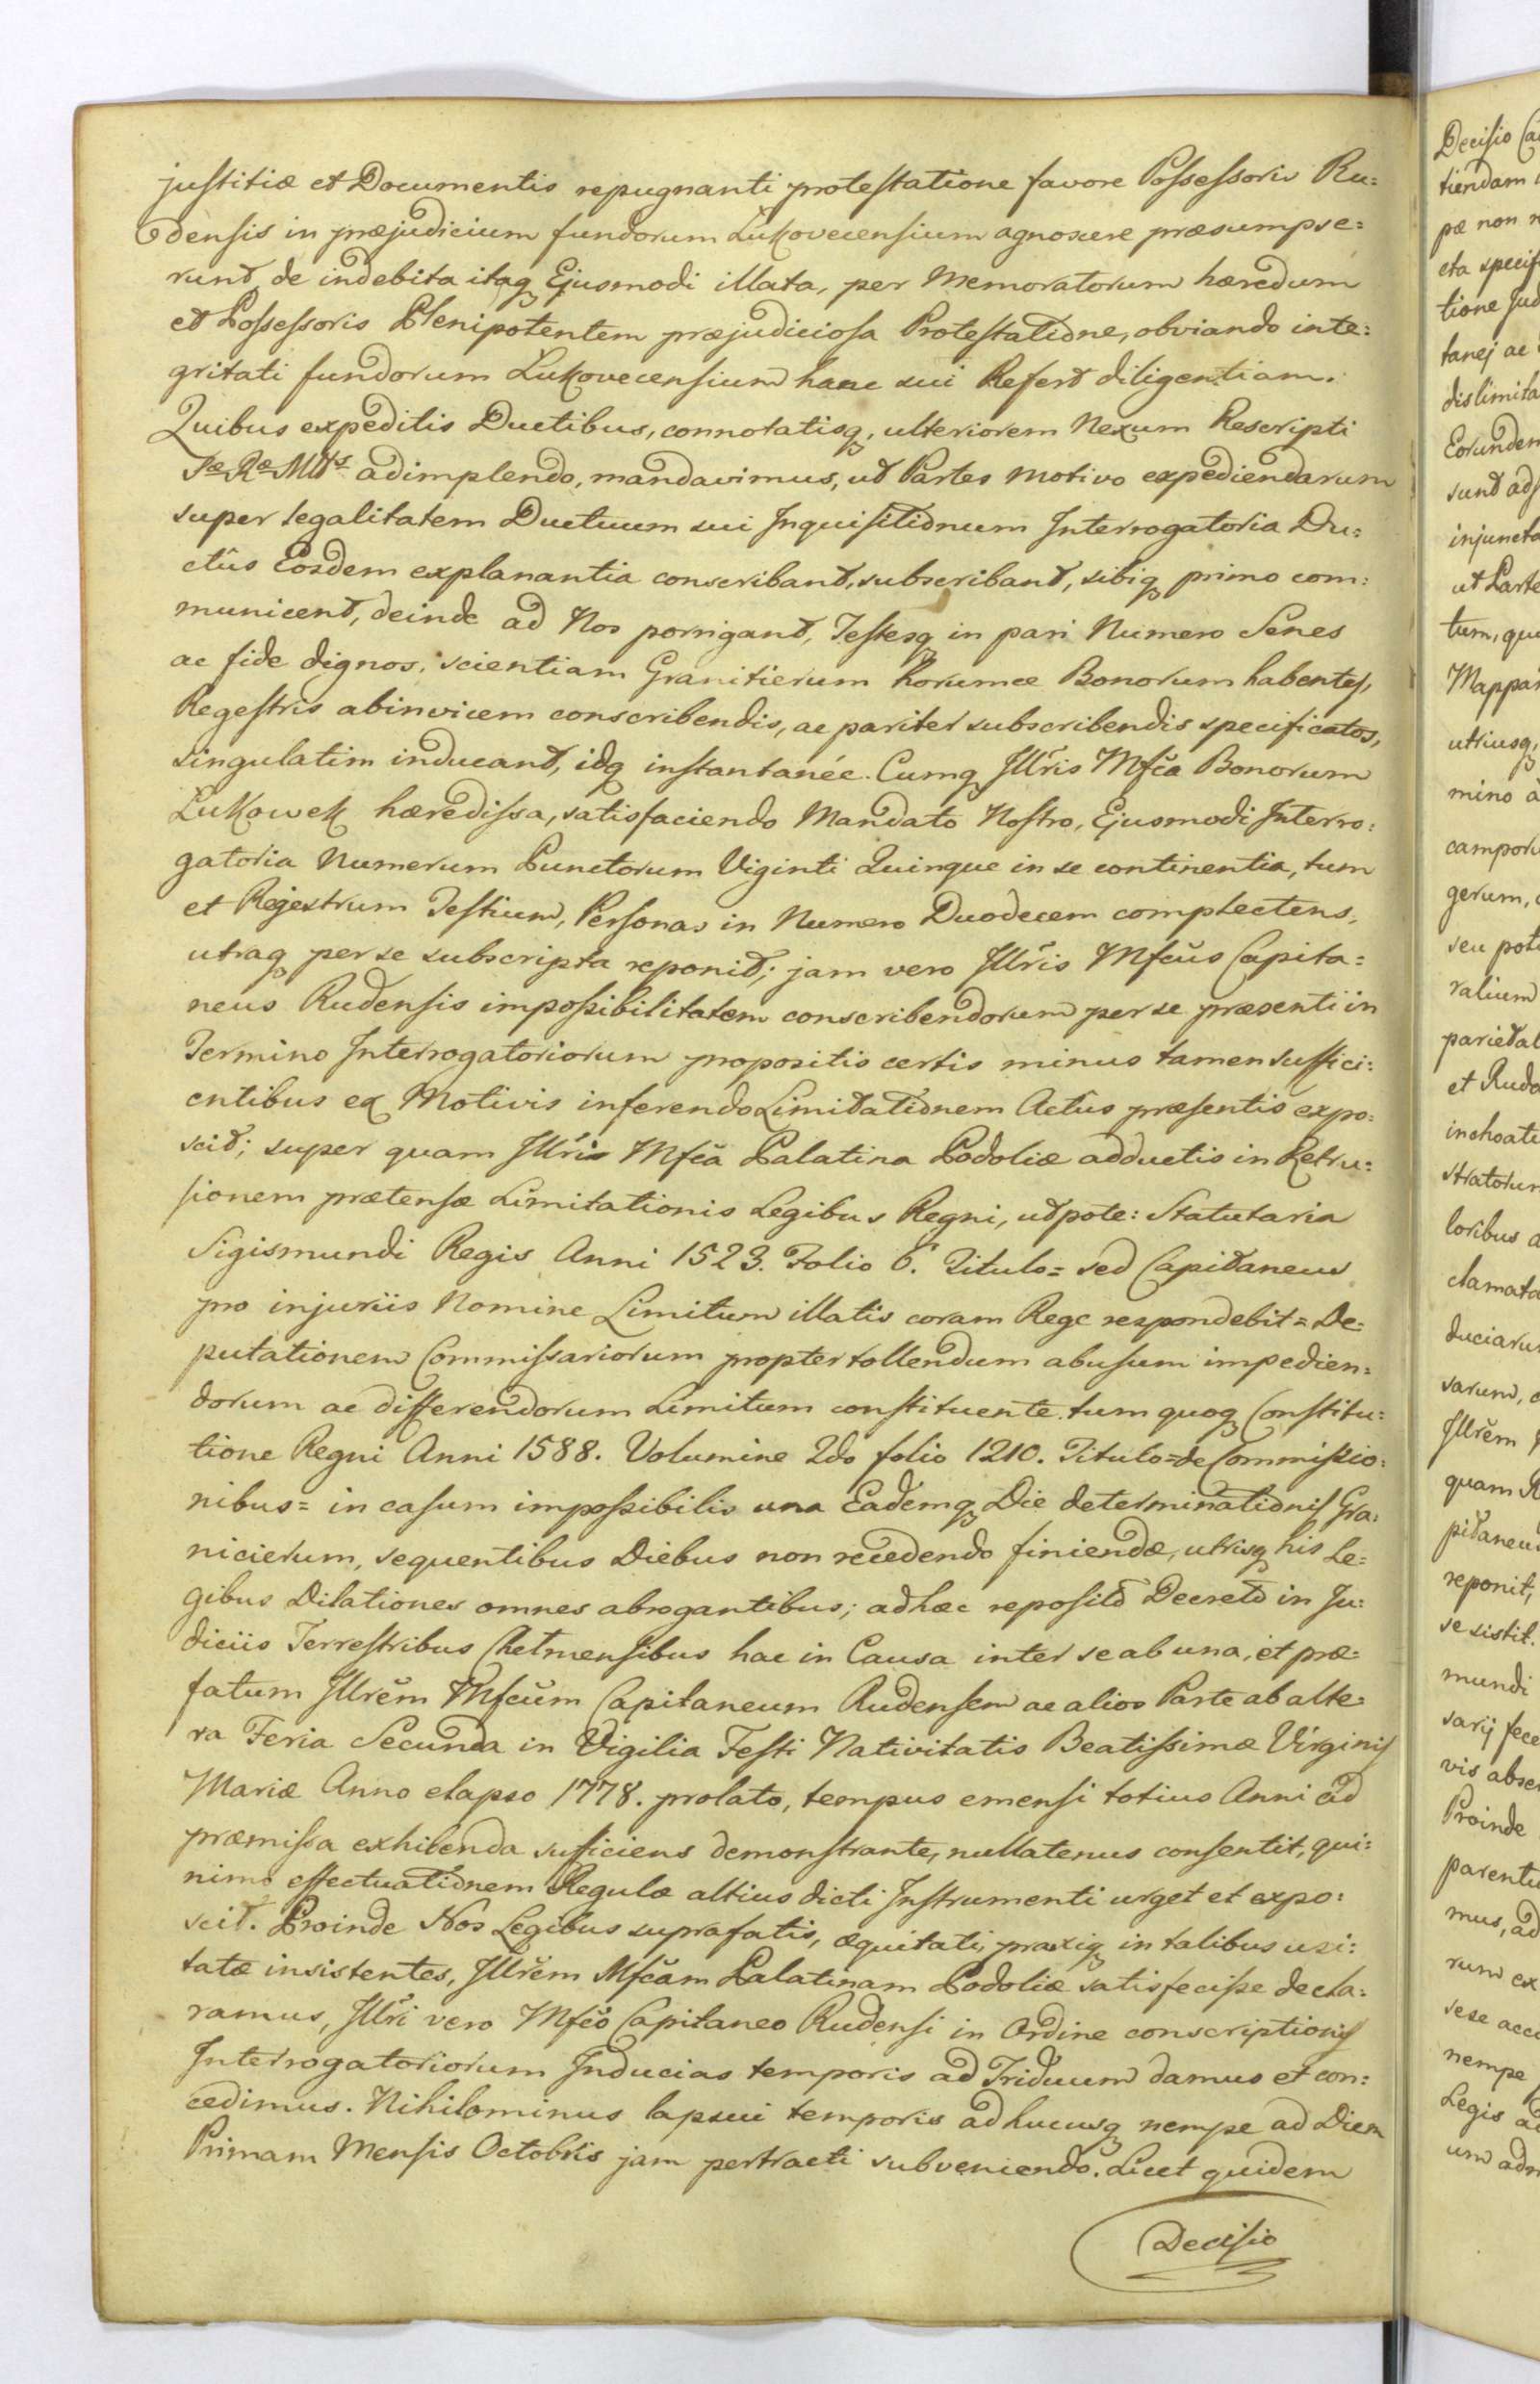 justitiæ et Documentis repugnanti protestatione favore Possessoris Ru=
densis in præjudicium fundorum Lukovecensium agnoscere præsumpse=
runt, de indebita itaq Ejusmodi illata, per Memoratorum hæredum
et Possessoris Plenipotentem præjudiciosa Protestatione, obviando inte=
gritati fundorum Lukovecensium hanc sui Refert diligentiam.
Quibus expeditis Ductibus, connotatisq, ulteriorem Nexum Rescripti
Sæ Ræ Mttis adimplendo, mandavimus, ut Partes motivo expediendarum
super legalitatem Ductuum sui Inquisitionum Interrogatoria Du=
ctûs Eosdem explanantia conscribant, subscribant, sibiq primo com=
municent, deinde ad Nos porrigant, Testesq in pari Numero Senes
ac fide dignos, scientiam Granitierum horumce Bonorum habentes,
Regestris abinvicem conscribendis, ac pariter subscribendis specificatos,
singulatim inducant, idq instantanée. Cumq Jllris Mfca Bonorum
Lukowek hæredissa, satisfaciendo Mandato Nostro, Ejusmodi Interro=
gatoria Numerum Punctorum Viginti Quinque in se continentia, tum
et Regestrum Testium, Personas in Numero Duodecem complectens,
utraq per se subscripta reponit; jam vero Jllris Mfcus Capita=
neus Rudensis impossibilitatem conscribendorum per se præsenti in
Termino Interrogatoriorum propositis certis minus tamen suffici=
entibus ex Motivis inferendo Limitationem Actûs præsentis expo=
scit; super quam Jllris Mfca Palatina Podoliæ adductis in Retru=
sionem prætensæ Limitationis Legibus Regni, utpote: Statutaria
Sigismundi Regis Anni 1523. Folio 6. Titulo= sed Capitaneus
pro injuriis Nomine Limitum illatis coram Rege respondebit= De=
putationem Commissariorum propter tollendum abusum impedien=
dorum ac differendorum Limitum constituente tum quoq Constitu=
tione Regni Anni 1588. Volumine 2do folio 1210. Titulo=de Commissio=
nibus= in casum impossibilis una Eademq Die determinationis Gra=
nicierum, sequentibus Diebus non recedendo finiendæ, utrisq his Le=
gibus Dilationes omnes abrogantibus; adhæc reposito Decreto in Ju=
diciis Terrestribus Chelmensibus hac in Causa inter se ab una, et præ=
fatum Jllrem Mfcum Capitaneum Rudensem ac alios Parte ab alte=
ra Feria Secunda in Vigilia Festi Nativitatis Beatissimæ Virginis
Mariæ Anno elapso 1778. prolato, tempus emensi totius Anni ad
præmissa exhibenda sufficiens demonstrante, nullatenus consentit, qui=
nimo effectuationem Regulæ altius dicti Instrumenti urget et expo=
scit. Proinde Nos Legibus suprafatis, æquitati, praxiq in talibus usi=
tatæ insistentes, Jllrem Mfcam Palatinam Podoliæ satisfecisse decla=
ramus, Jllri vero Mfco Capitaneo Rudensi in Ordine conscriptionis
Interrogatoriorum Inducias temporis ad Triduum damus et con=
cedimus. Nihilominus lapsui temporis adhucusq nempe ad Diem
Primam Mensis Octobris jam pertracti subveniendo. Licet quidem
Decisio